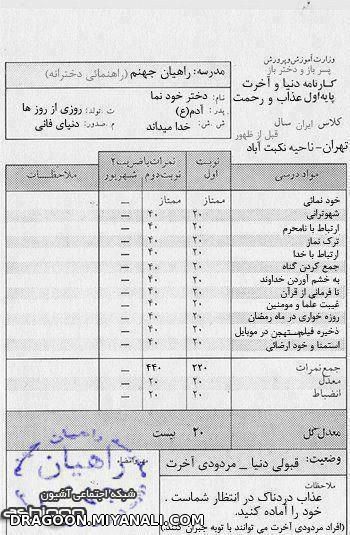 وزارت آموزش و پرورش
پسر باز و دختر باز
کارنامه دنیا و آخرت
پایه اول عذاب و رحمت
کلاس ایران سال
قبل از ظهور
تهران - ناحیه نکبت آباد
مدرسه: راهیان جهنم (راهنمائی دخترانه)
نام: دختر خود نما
پدر: آدم (ع) ت. تولد: روزی از روز ها
ش. ش: خدا میداند م. صدور: دنیای فانی
مواد درسی نوبت اول نمرات با ضریب ۲ نوبت دوم شهریور ملاحظات
خود نمائی ممتاز ممتاز —
شهوترانی ۲۰ ۴۰ —
ارتباط با نامحرم ۲۰ ۴۰ —
ترک نماز ۲۰ ۴۰ —
ارتباط با خدا ۲۰ ۴۰ —
جمع کردن گناه ۲۰ ۴۰ —
به خشم آوردن خداوند ۲۰ ۴۰ —
نا فرمانی از قرآن ۲۰ ۴۰ —
غیبت علما و مومنین ۲۰ ۴۰ —
روزه خواری در ماه رمضان ۲۰ ۴۰ —
ذخیره فیلم مستهجن در موبایل ۲۰ ۴۰ —
استمنا و خود ارضائی ۲۰ ۴۰ —
جمع نمرات ۲۲۰ ۴۴۰ —
معدل ۲۰ ۲۰ —
انضباط ۲۰ ۲۰ —
معدل کل ۲۰ بیست
وضعیت: قبولی دنیا _ مردودی آخرت
مهر و امضاء
ملاحظات
عذاب دردناک در انتظار شماست.
خود را آماده کنید.
(افراد مردودی آخرت می توانند با توبه جبران کنند)
راهیان
راهیان
شبکه اجتماعی آشیون
DRAGOON.MIYANALI.COM